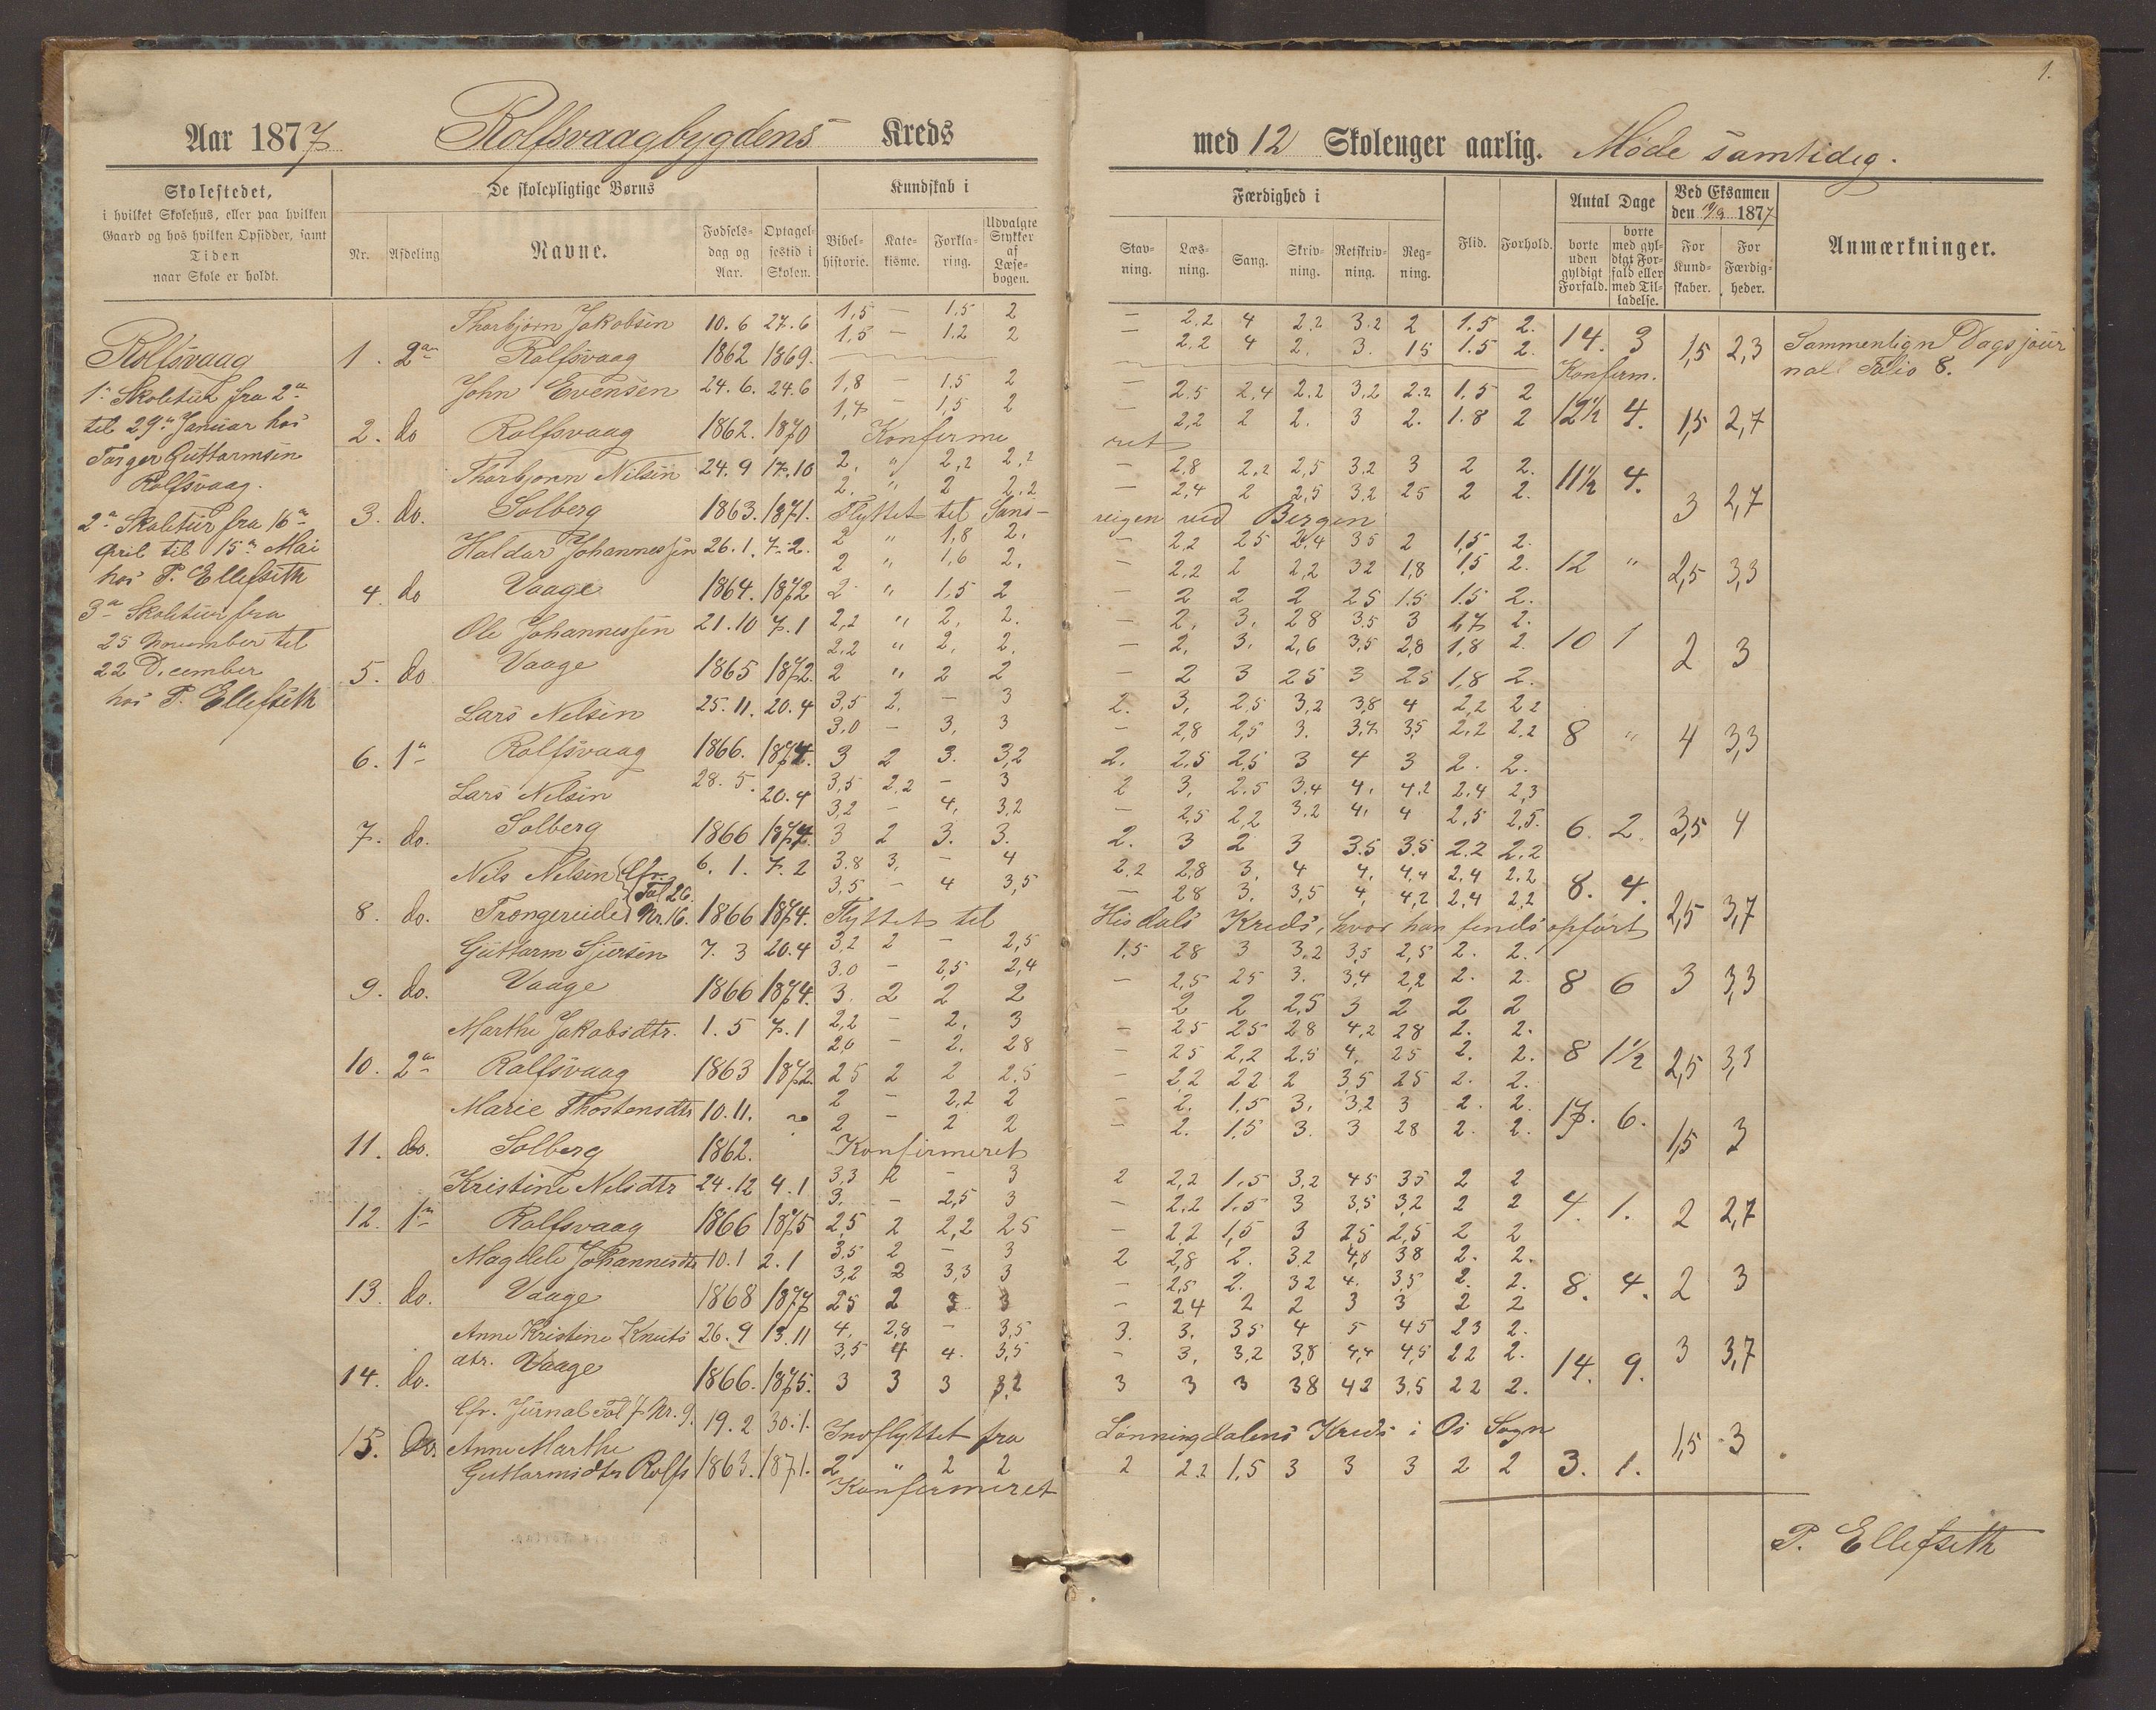 1.
Aar 1877 Rolfsvaagbygdens Kreds
med 12 Skoleuger aarlig. Møde samtideg.
Skolestedet,
i hvilket Skolehus, eller paa hvilken
Gaard og hos hvilken Opsidder, samt
Tiden
naar Skole er holdt.
De skolepligtige Børns
Nr. Afdeling Navne. Fødsels- dag og Aar. Optagel- sestid i Skolen.
Kundskab i
Bibel- historie. Kate- kisme. Forkla- ring. Udvalgte Stykker af Læse- bogen.
Færdighed i
Stav- ning. Læs- ning. Sang. Skriv- ning. Retskriv- ning. Reg- ning. Flid. Forhold.
Antal Dage
borte uden gyldigt Forfald. borte med gyl- digt For- fald eller med Til- ladelse.
Ved Eksamen
den 19/9 1877
For Kund- skaber. For Færdig- heder.
Anmærkninger.
Rolfsvaag
1ste Skoletur fra 2en
til 29en Januar hos
Torger Guttormsen
Rolfsvaag.
2en Skoletur fra 16en
April til 15en Mai
hos P. Ellefseth
3en Skoletur fra
25 November til
22 December
hos P. Ellefseth
Thorbjørn Jakobsen 10.6 27.6 1,5 — 1.5 2 — 2.2 4 2.2 3.2 2 1.5 2.
1,5 — 1.2 2 — 2.2 4 2. 3. 15 1.5 2. 14. 3 1,5 2,3 Sammenlign Dagsjour
1. 2en Rolfsvaag 1862 1869. Konferm. nal Folio 8.
John Evensen 24.6. 24.6 1,8 — 1,5 2 — 2.5 2,4 2.2 3,2 2.2 1,5 2
1,7 — 1,5 2 — 2,2 2 2. 3 2. 1.8 2 12½ 4. 1,5 2,7
2. do Rolfsvaag 1862. 1870 Konferme ret
Thorbjørn Nilsen 24.9 17.10 2. " 2,2 2.2 — 2.8 2.2 2,5 3.2 3 2 2.
2. " 2 2.2 — 2,4 2 2,5 3.2 25 2 2. 11½ 4. 3 2,7
3. do. Solberg 1863. 1871. Flyttet til Sand- vigen ved Bergen
Haldor Johannessen 26.1. 7.2. 2 " 1,8 2. — 2,2 25 2,4 35 2 1,5 2.
2 " 1,6 2. — 2,2 2 2,2 32 1,8 1,5 2. 12 " 2,5 3,3
4. do Vaage 1864. 1872 2 " 1,5 2 — 2 2 2 25 1.5 1.5 2.
Ole Johannessen 21.10 7.1 2,2 " 2. 2. — 2, 3. 28 3.5 3 1,7 2.
2.2 " 2. 2. — 2, 3. 2,6 3,5 2,8 1,8 2. 10 1 2 3
5. do Vaage 1865 1872. 2 " 2 2 — 2 3 25 3 25 1,8 2.
Lars Nelsen 25.11. 20.4 3,5 2. — 3 2. 3, 2,5 3,2 3,8 4 2,2 2 2
3.0 — 3, 3 — 2,8 2,5 3. 3.7 3,5 2,2 2.2 8 " 4 3,3
6. 1en Rolfsvaag 1866. 1874. 3 2 3. 3,2 2. 2.5 2,5 3 4 3 2. 2.
Lars Nelsen 28.5. 20.4 3,5 2,2 — 3 2 3, 2.5 3.4 4. 4.2 2.4 2,3
3,2 — 4, 3.2 — 2,5 2,2 3.2 4. 4 2,5 2,5. 6. 2. 3,5 4
7. do. Solberg 1866 1874. 3 2 3. 3. 2. 3 2 3 3.5 3.5 2.2 2.2
Nils Nelsen Cfr. Fol 26. Nr. 16. 6.1. 7.2 3.8 3, — 4 2.2 2,8 3. 4 4. 4,4 2,4 2.2
3,5 — 4 3,5 — 28 3. 3,5 4, 4,2 2,4 2,2 8. 4. 2,5 3,7
8. do. Trongereide 1866 1874. Flyttet til Hisdals Kreds, hvor han fendes opført
Guttorm Sjursen 7.3 20.4 3,2 2 — 2,5 1,5 28 3 3,2 3,5 2,5 2. 2.
3.0 — 2,5 2,4 — 2,5 25 3. 3,4 2,2 2. 2. 8 6 3 3,3
9. do. Vaage 1866 1874. 3. 2 2 2 2 2 2,5 3 2 2 2
Marthe Jakobsdtr. 1.5 7.1 2,2 — 2. 3 — 25 2.5 28 4,2 28 2. 2.
2,0 — 2. 28 — 25 2,2 2.5 4. 25 2. 2. 8 1½ 2,5 3,3
10. 2en Rolfsvaag 1863 1872. 25 2 2 2.5 — 22 22 2 3,5 25 2. 2.
Marie Thostensdtr 10.11. ~ 2 — 2,2 2 — 2. 1.5 3. 3,2 3 2. 2.
2 — 2 2 — 2. 1.5 3. 3 28 2. 2. 17. 6. 1,5 3
11. do. Solberg 1862. Konfirmeret
Kristine Nelsdtr 24.12 4.1 3,3 2 — 3 2 2,2 1.5 3,2 45 35 2 2
3. — 2,5 3 — 2.2 1.5 3 3,5 3,2 2 2 4. 1. 2 2,7
12. 1en Rolfsvaag 1866 1875 2,5 2 2,2 25 — 2,2 1,5 3 25 2,5 2 2
Magdele Johannesdtr 10.1 2.1 3.5 2 — 3 2 2,8 2. 32 4,0 38 2. 2.
3,2 2 3,3 3 — 2,5 2. 32 4. 35 2. 2. 8. 4. 2 3
13. do. Vaage 1868 1877 25 2 3 3 — 24 2 2 3 3 2 2
Anne Kristine Knuts 26.9 13.11 4. 2,8 — 3,5 3. 3. 35 4 5 45 23 2.
dtr. Vaage 3,5 4 4. 3,5 — 3, 3,2 3,8 4,4 4,5 22 2. 14. 9. 3 3,7
14. do. 1866. 1875. 3 3 3 3.2 3 3 3 38 42 3.5 22 2.
Cfr. Jurnal Fol 7 Nr. 9. 19.2 30.1. Indflyttet fra Lønningdalens Kreds i Os Sogn
15. Do. Anne Marthe 1,5 3
Guttormsdtr Rolfs 1863. 1871. 2 " 2 2 2 2.2 1,5 3 3 3 2 2 3. 1.
Konfermeret
P. Ellefseth